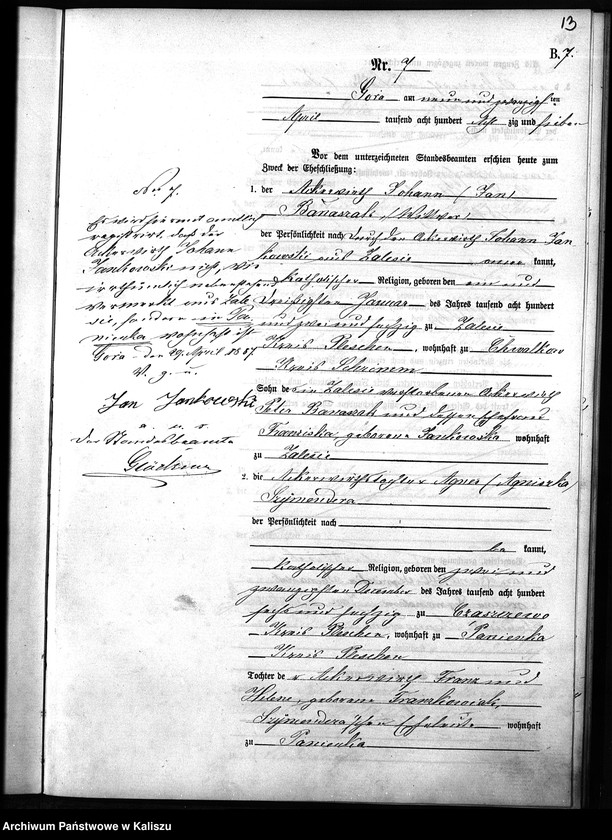 13
B. 7.
Nr. 7
Gora am neun und zwanzigsten
April tausend acht hundert achtzig und sieben
Vor dem unterzeichneten Standesbeamten erschien heute zum
Zweck der Eheschließung:
1. der Ackerwirth Johann (Jan)
Banaszak, (Wittwer)
der Persönlichkeit nach durch den Ackerwirth Johann Jan-
kowski aus Zalesie kannt,
katholischer Religion, geboren den ein und
dreißigsten Januar des Jahres tausend acht hundert
und zwei und sechzig zu Zalesie
Kreis Pleschen, wohnhaft zu Chwalkow
Kreis Schrimm
Sohn de s in Zalesie verstorbenen Ackerwirth
Peter Banaszak und dessen Ehefrau
Franziska geborene Jankowska wohnhaft
zu Zalesie
2. die Ackerwirthstochter Agnes (Agnieszka)
Szymendera
der Persönlichkeit nach
be kannt,
katholischer Religion, geboren den zwei und
zwanzigsten Dezember des Jahres tausend acht hundert
sechs und sechzig zu
Kreis Pleschen, wohnhaft zu Panienka
Kreis Pleschen
Tochter de r Ackerwirth Franz und
Helene, geborene Frankowiak,
Szymendera'schen Eheleute wohnhaft
zu Panienka
No. 7.
Es wird hiermit amtlich
registrirt, daß der
Ackerwirth Johann
Jankowski nicht, wie
irrthümlich nebenstehend
vermerkt aus Zale-
sie, sondern in Pa-
nienka wohnhaft ist.
Gora den 29 April 1887.
V. g. u.
Jan Jankowski
a. u. s.
Der Standesbeamte
Archiwum Państwowe w Kaliszu